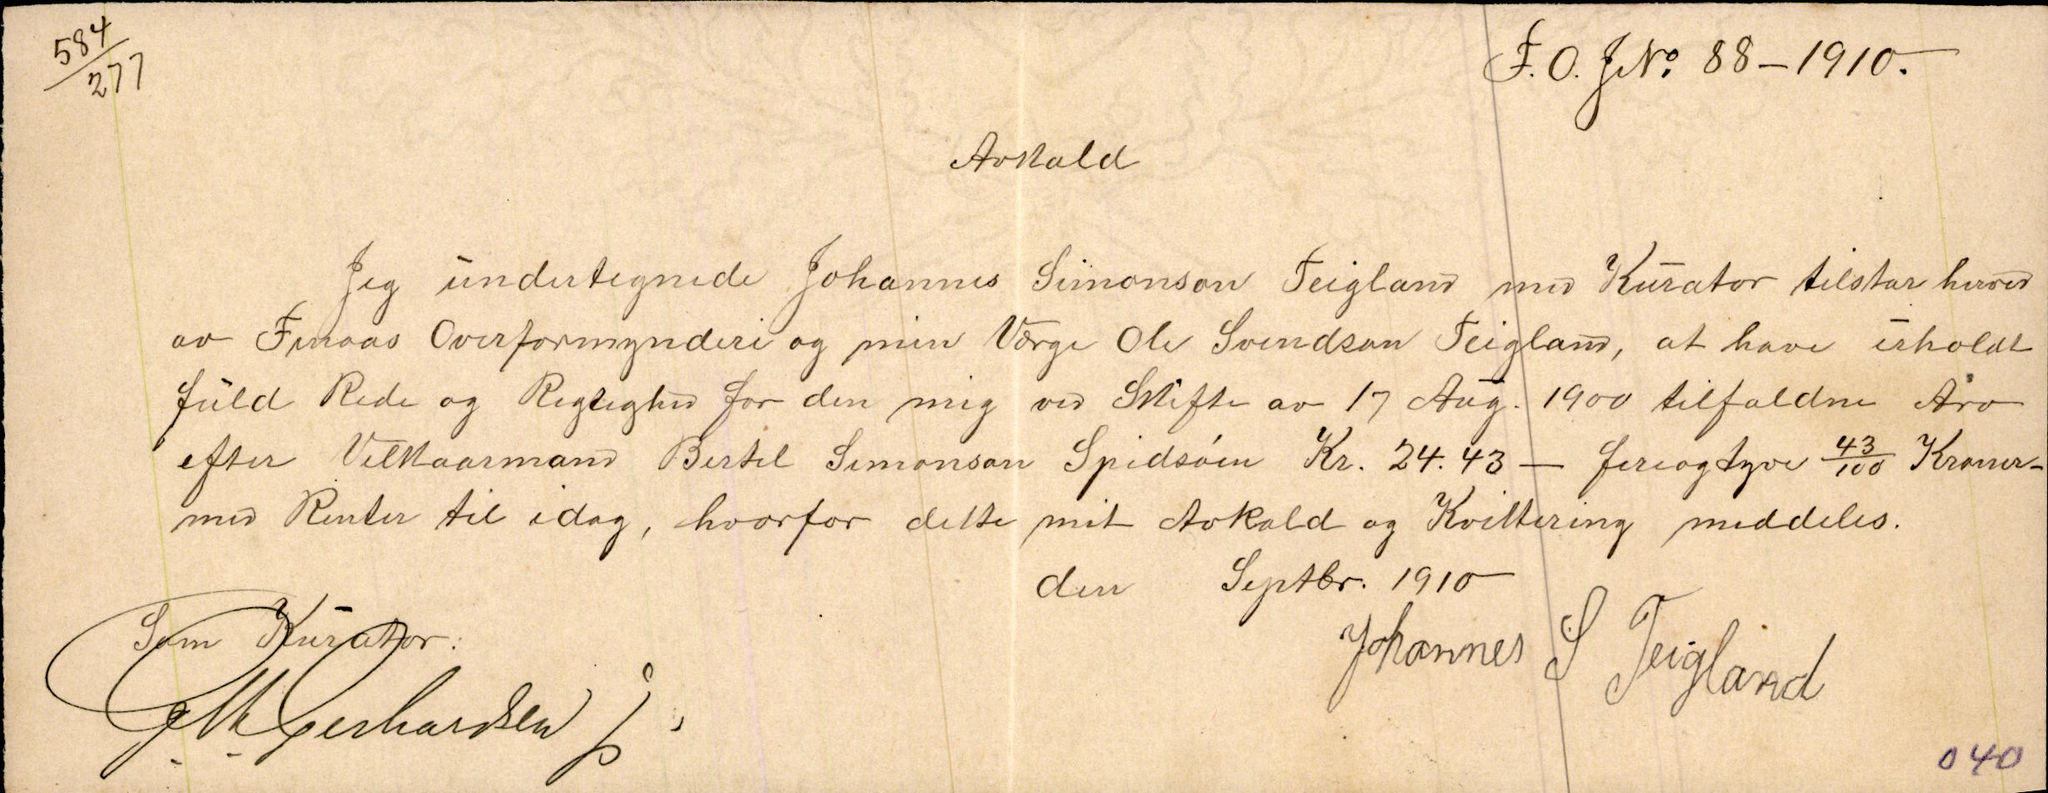 584
277
F. O. J No. 88 – 1910.
Avkald
Jeg undertegnede Johannes Simonson Teigland med Kurator tilstar herved
av Finaas Overformynderi og min Værge Ole Svendson Teigland, at have erholdt
fuld Rede og Regtighed for den mig ved Skifte av 17 Aug. 1900 tilfaldne Arv
efter Velkaarmand Bertel Simonson Spidsöen Kr. 24.43 – fireogtyve 43/100 Kroner –
med Renter til idag, hvorfor dette mit Avkald og Kvittering meddeles.
den Septbr. 1910
Som Kurator:
Johannes S Teigland
Gerhardsen jr.
040